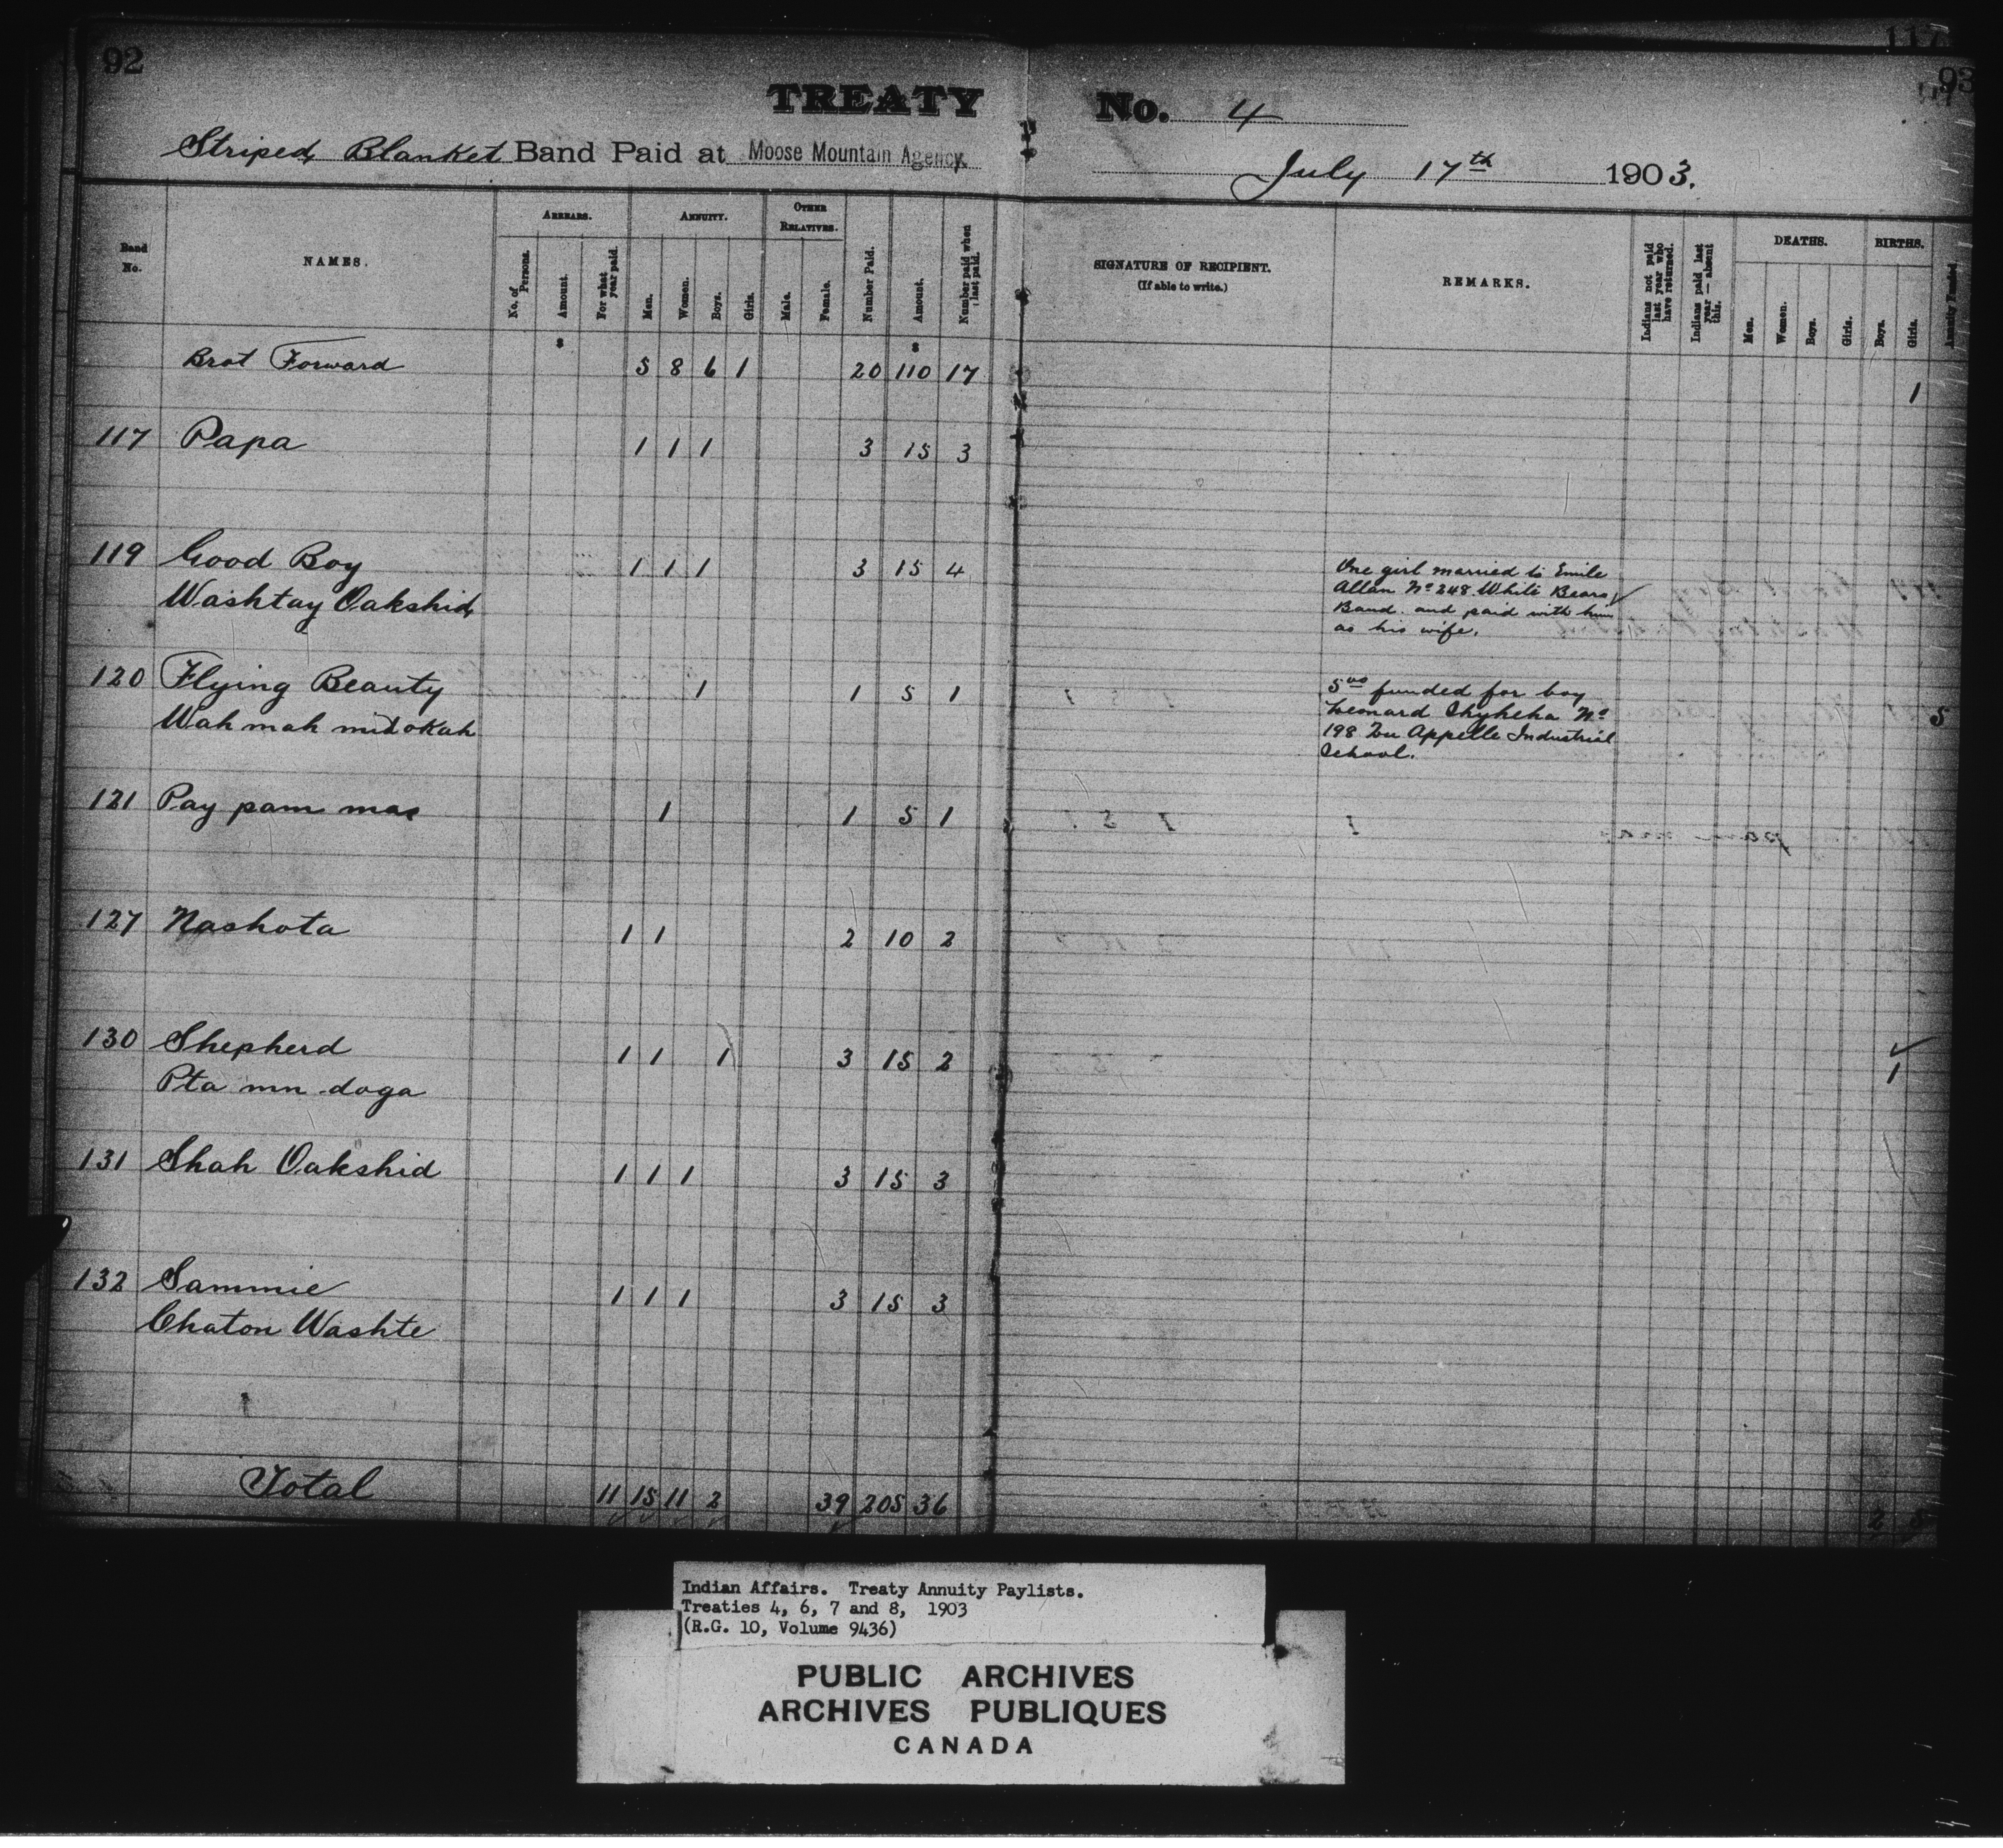 92
117
93
TREATY No. 4
Striped Blanket Band Paid at Moose Mountain Agency.
July 17th 1903.
Band No.
NAMES.
ARREARS.
No. of Persons.
Amount.
For what year paid.
ANNUITY.
Men.
Women.
Boys.
Girls.
OTHER RELATIVES.
Male.
Female.
Number Paid.
Amount.
Number paid when last paid.
SIGNATURE OF RECIPIENT.
(If able to write.)
REMARKS.
Indians not paid last year who have returned.
Indians paid last year — absent this.
DEATHS.
Men.
Women.
Boys.
Girls.
BIRTHS.
Boys.
Girls.
Annuity Funded.
$ $
Brot Forward 5 8 6 1 20 110 17 1
117 Papa 1 1 1 3 15 3
119 Good Boy 1 1 1 3 15 4
Washtay Oakshid
One girl married to Emile
Allan No 248 White Bears
Band. and paid with him
as his wife.
120 Flying Beauty 1 1 5 1
Wah mah mid okah
5 00 funded for boy
Leonard Chykeha No
198 Qu Appelle Industrial
School.
5
121 Pay pam mas 1 1 5 1
127 Nashota 1 1 2 10 2
130 Shepherd 1 1 1 3 15 2
Pta mn doga
1
131 Shah Oakshid 1 1 1 3 15 3
132 Sammie 1 1 1 3 15 3
Chaton Washte
Total 11 15 11 2 39 205 36 2 5
Indian Affairs. Treaty Annuity Paylists.
Treaties 4, 6, 7 and 8, 1903
(R.G. 10, Volume 9436)
PUBLIC ARCHIVES
ARCHIVES PUBLIQUES
CANADA